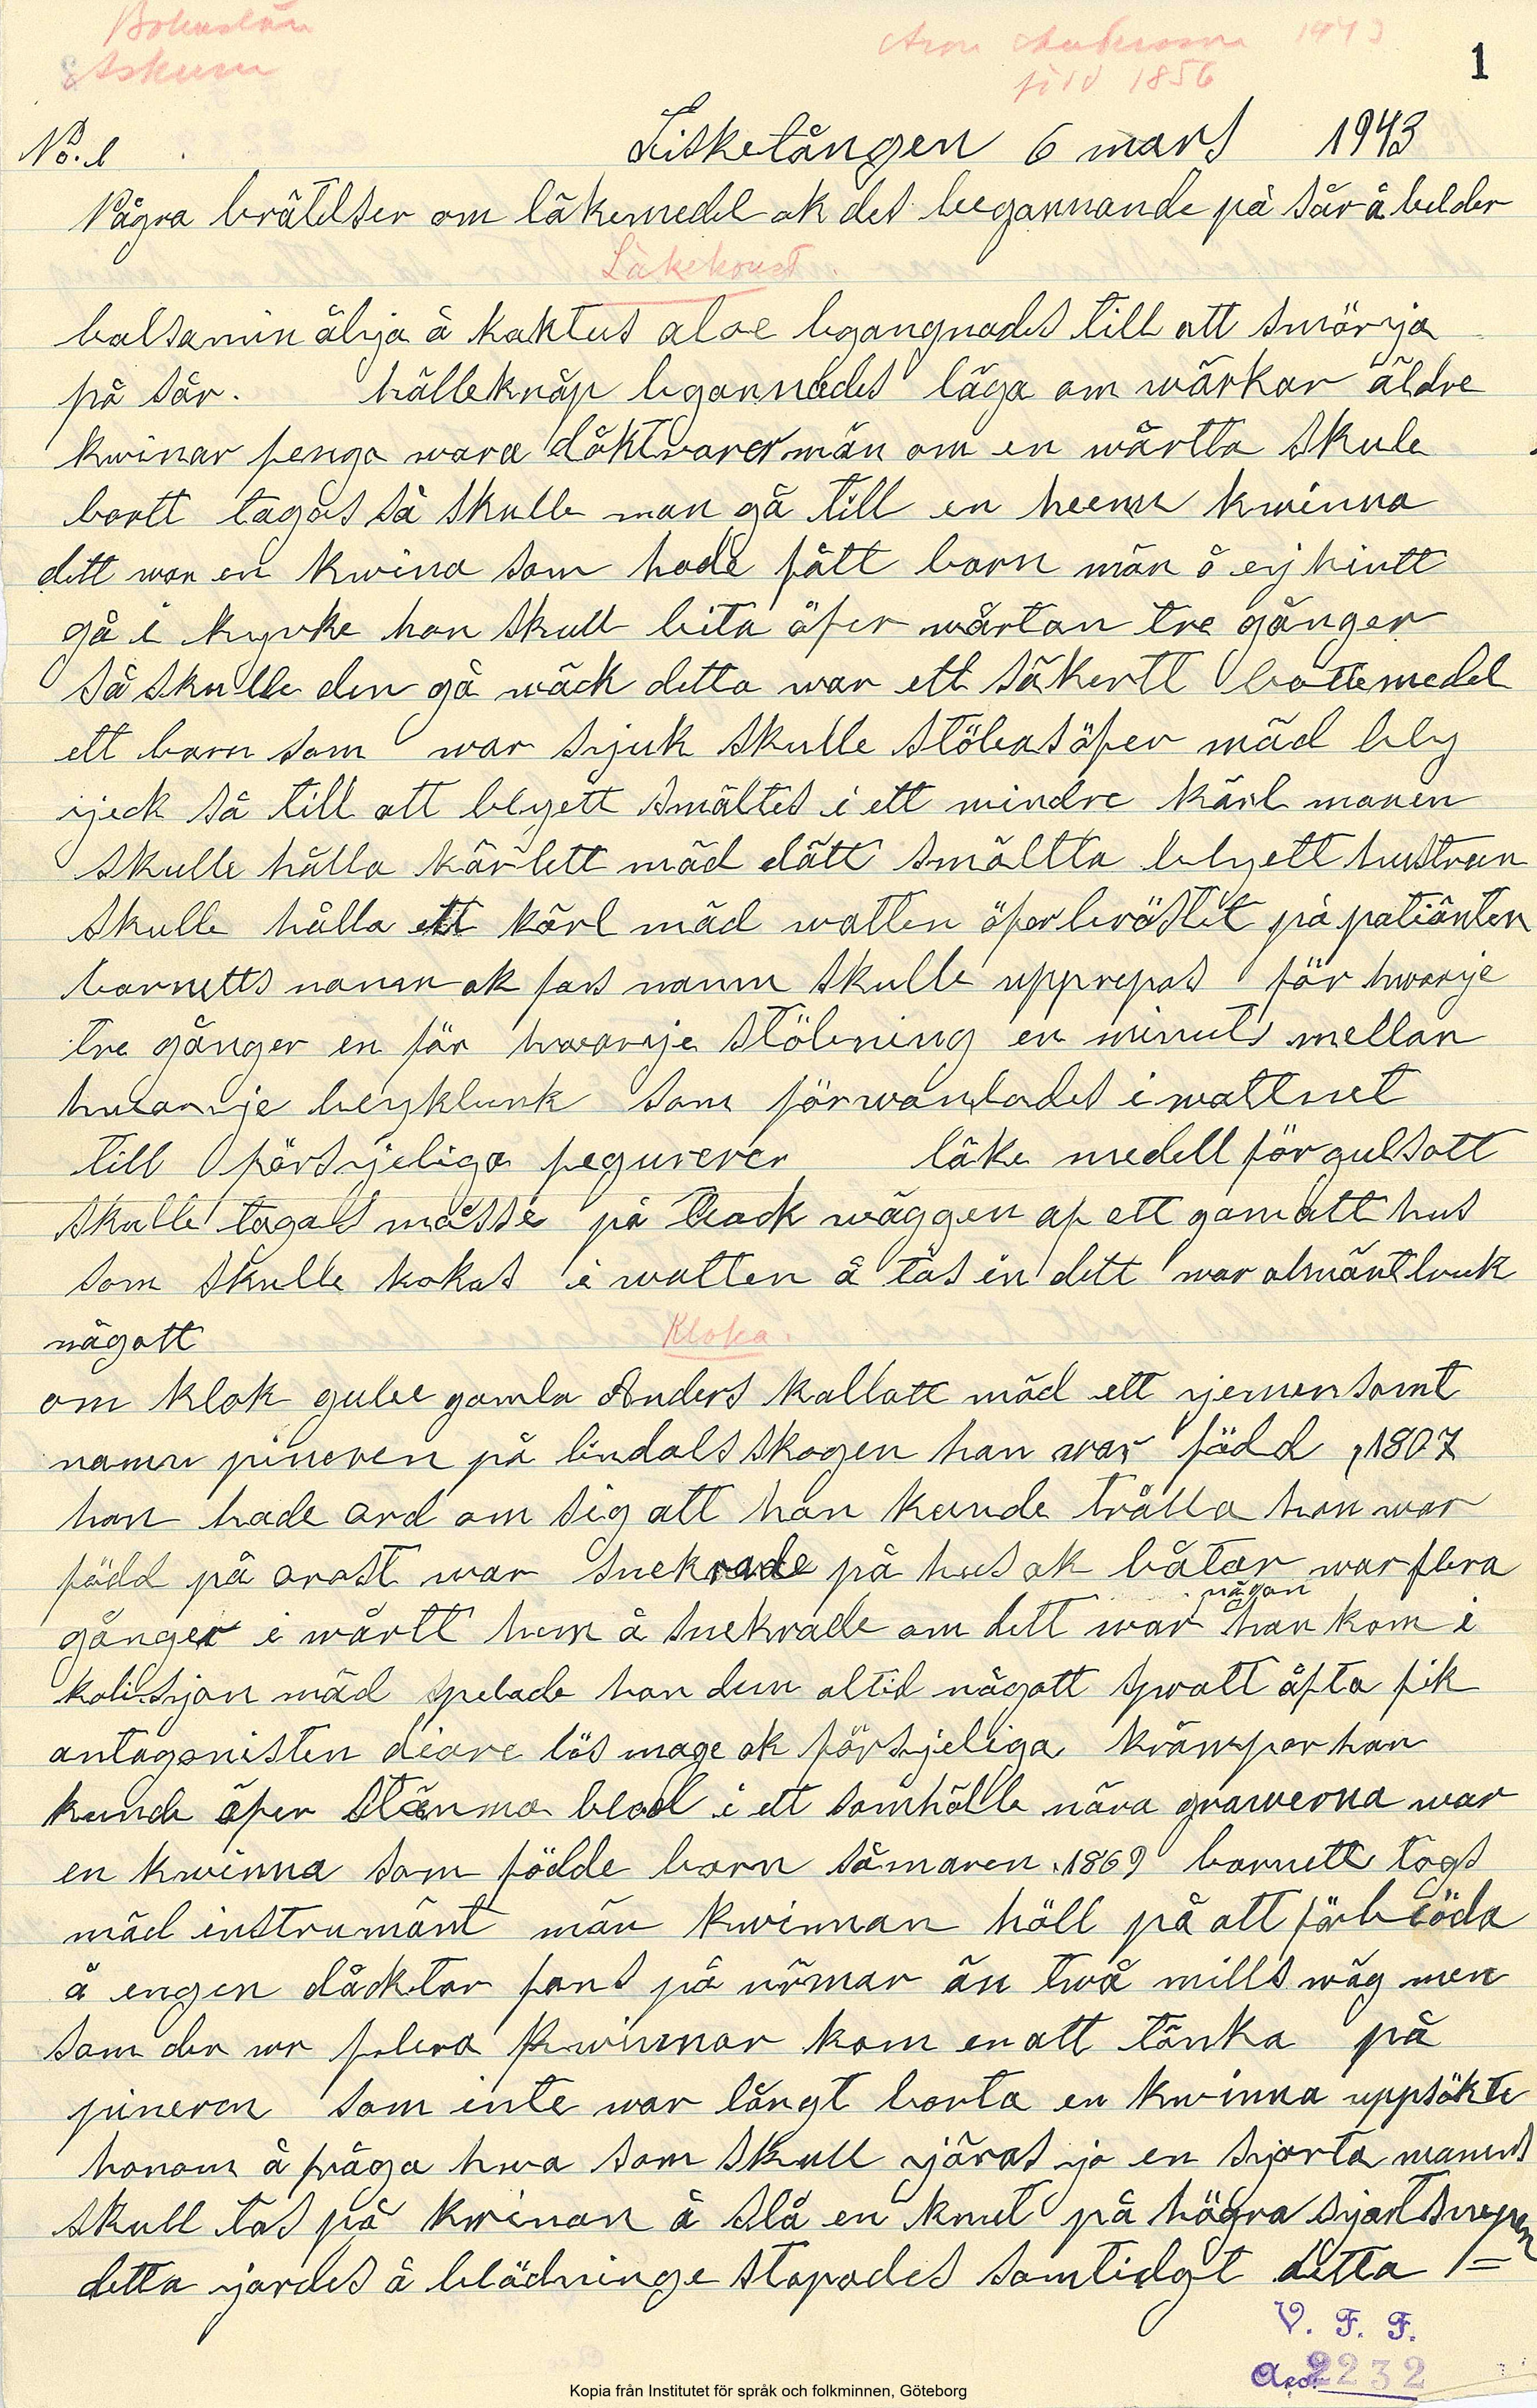 Bohuslän
Askum
Aron Andersson 1943
född 1856
1
No. 1
Fisketången 6 mars 1943
Några brätelser om läkemedel ok des begannande på sår å bölder
Läkekonst.
balsamin ålija å kaktus aloe begangnades till att smörija
på sår. hälleknäp begannades läga om wärkar äldre
kwinar fenga wara dåktorar män om en wårtta skule
bortt tagas så skulle man gå till en heemu kwinna
dett war en kwina som hade fått barn män å ej hintt
gå i kyrke hon skull bita öfer wårtan tre gånger
så skulle den gå wäck detta war ett säkertt botemedel
ett barn som war sjuk skulle stöbas öfer mäd bly
ijeck så till att blyett smältes i ett mindre kärl manen
skulle hålla kärlett mäd dätt smältta blyett hustrun
skulle hålla ett kärl mäd watten öfer bröstet på patiänten
barnetts namn ok fars namn skulle upprepas för hwarje
tre gånger en för hwarije stöbning en minuts mellan
hwarije blyklunk som förwandlades i wattnet
till försjeliga fegurerer läke medell för gulsott
skulle tagas måsse på back wäggen af ett gamalt hus
som skulle kokas i watten å tas in dett war almänt bruk
någott
Kloka.
om klok gube gamla Anders kallatt mäd ett ijemensamt
namn pineren på lindals skogen han war född 1807
han hade ord om sig att han kunde trålla han war
född på orost war snekrade på hus ok båtar war flera
gånger i wårtt hem å snekrade om dett war någon han kom i
kolisijon mäd spelade han dem altid någott spratt åfta fik
antagonisten diare lös mage ok försijeliga krämpor han
kunde äfen stämma blod i ett samhälle nära grawerna war
en kwinna som födde barn såmaren 1869 barnett togs
mäd instrumänt män kwinnan höll på att förblöda
å engen dåcktor fans på närmar än twå mills wäg men
som der wr flera kwinnor kom en att tänka på
pineren som inte war långt borta en kwinna uppsökte
honom å fråga hwa som skull ijöras jo en sjorta manns
skull tas på kwinan å slå en knut på högra sjortsnepen
detta ijordes å blödninge stopades samtidgt detta =
V. F. F.
Acc. 2232
Kopia från Institutet för språk och folkminnen, Göteborg